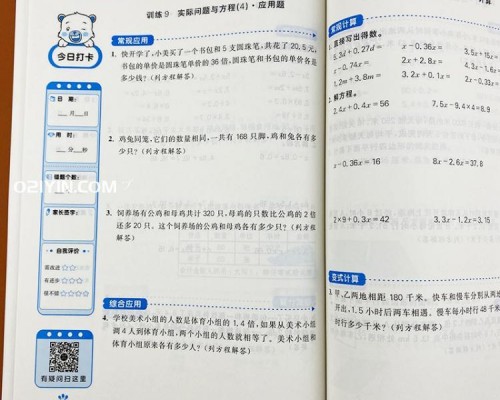 训练9 实际问题与方程(4)·应用题
今日打卡
日 期:
__月__日
用 时:
__分__秒
错题个数:
家长签字:
自我评价
有进步
很不错
有疑问扫这里
O2IYIN.COM
常规应用
1. 快开学了,小美买了一个书包和5支圆珠笔,共花了20.5元,
书包的单价是圆珠笔单价的36倍,圆珠笔和书包的单价各是
多少钱?(列方程解答)
2. 鸡兔同笼,它们的数量相同,一共有168只脚,鸡和兔各有多
少只?(列方程解答)
3. 饲养场有公鸡和母鸡共计320只,母鸡的只数比公鸡的2倍
还多20只。这个饲养场的公鸡和母鸡各有多少只?(列方程
解答)
综合应用
4. 学校美术小组的人数是体育小组的1.4倍,如果从美术小组
调4人到体育小组,两个小组的人数就相等了。美术小组和
体育小组原来各有多少人?(列方程解答)
常规计算
1. 直接写出得数。
5.3d+0.27d= x-0.36x= 3.5x+15x=
x-0.74x= 2x+2.8x= 4.3x-1.6x
1.2m+3.8m= 3.2x+0.1x= 2x-0.33x=
2. 解方程。
2.4x+0.4x=56 7.5x-9.4×4=8.9
x-0.36x=16 8x-2.6x=37.8
2×9+0.3x=42 3.3x-1.2x=3.15
变式计算
3. 甲、乙两地相距180千米。快车和慢车分别从两
开出,1.5小时后两车相遇。慢车每小时行48千米
时行多少千米?(列方程解答)